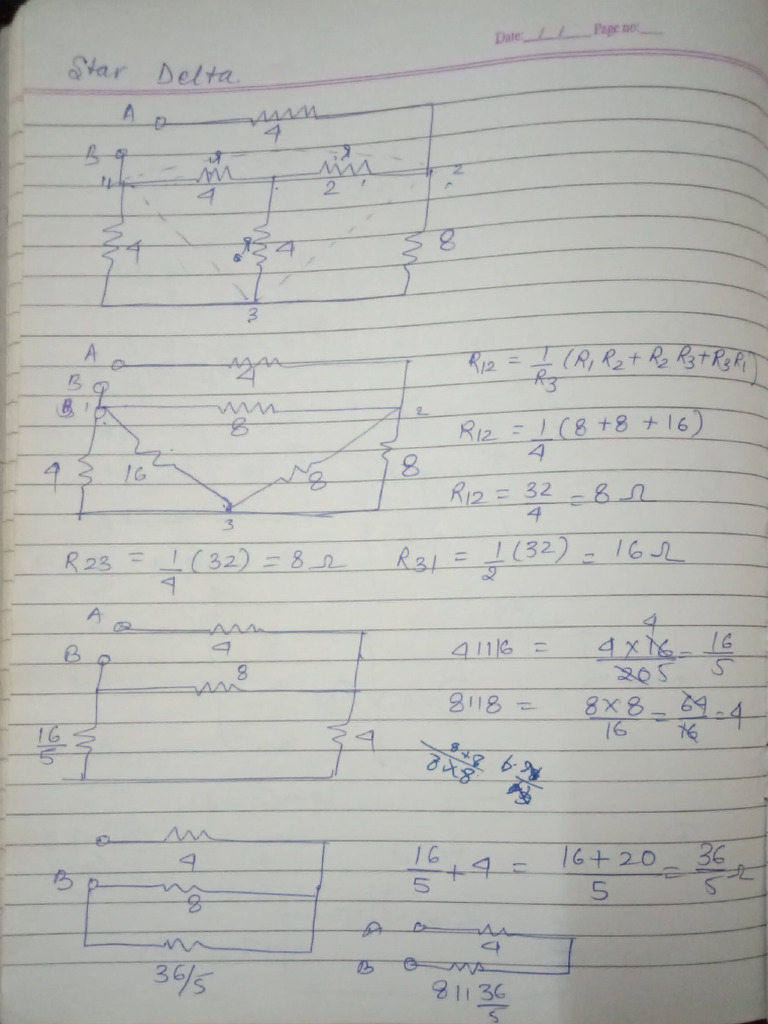 Date: / / Page no:
Star Delta
A
4
B
1 4 2 2
4 4 8
3
A
4
B
1 8 2
4 16 8 8
3
R12 = 1/R3 (R1 R2 + R2 R3 + R3 R1)
R12 = 1/4 (8 + 8 + 16)
R12 = 32/4 = 8 Ω
R23 = 1/4 (32) = 8 Ω R31 = 1/2 (32) = 16 Ω
A
4
B
8
16/5 4
4||16 = 4 × 16/20 5 = 16/5
4
8||8 = 8 × 8/16 = 64/16 = 4
4
B
8
36/5
16/5 + 4 = 16 + 20/5 = 36/5 Ω
A
4
B
8||36/5